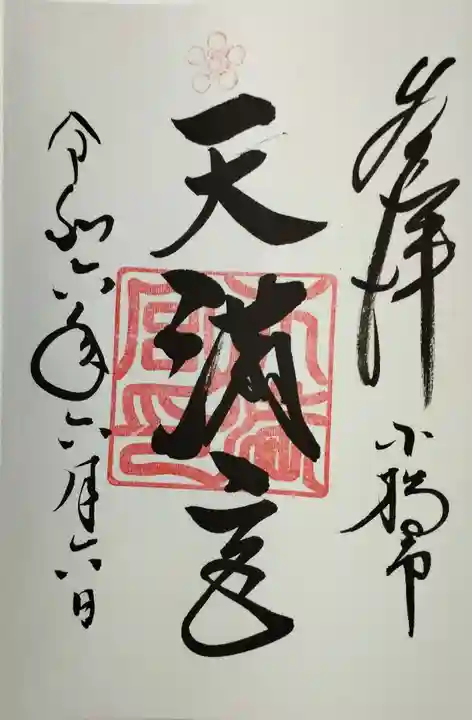 奉拝 小鴨市
天満宮
令和六年六月六日